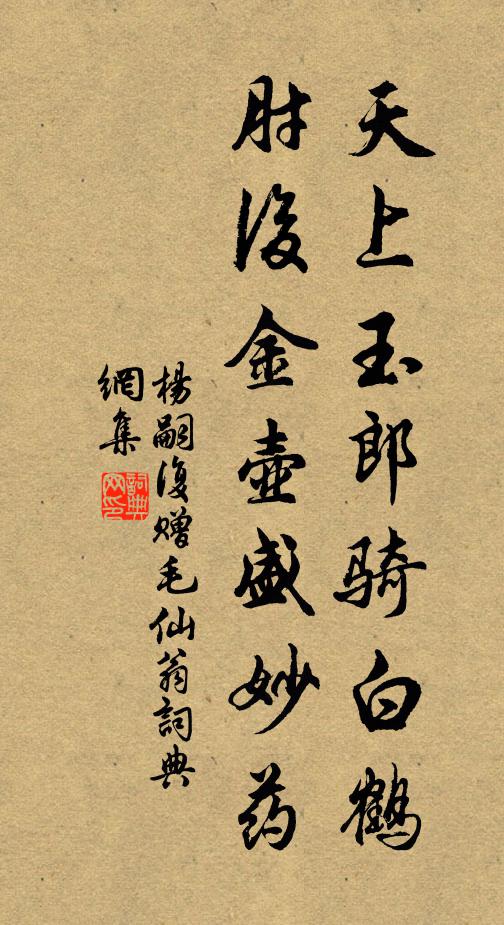 天上玉郎骑白鹤
肘後金壺盛妙药
楊嗣復赠毛仙翁詞典
網集
詞典網印